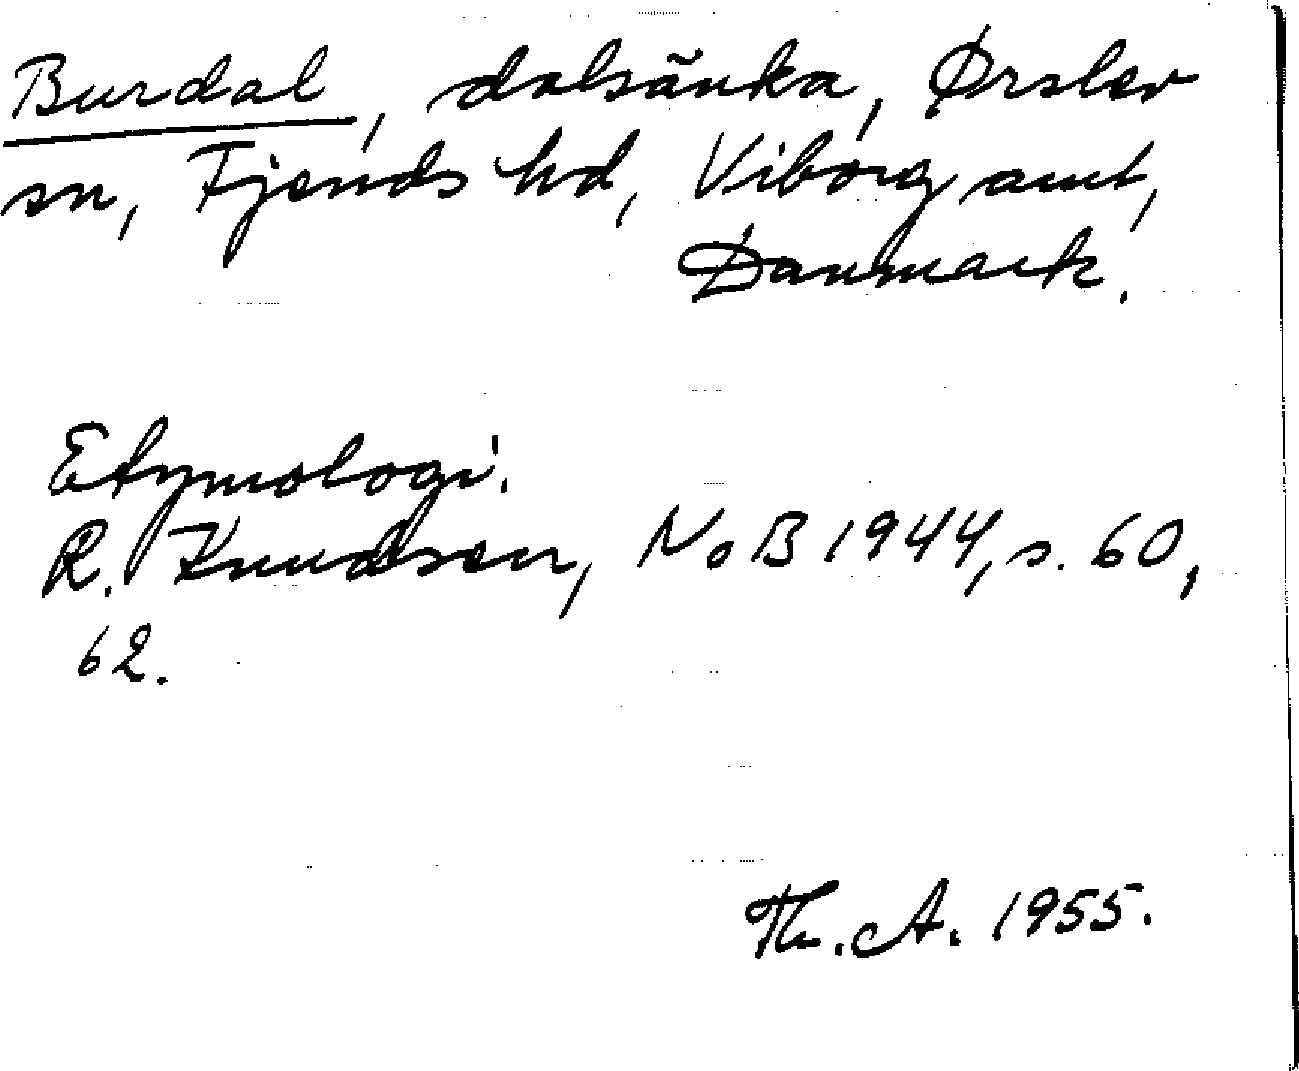 Burdal, dalsänka, Ørslev
sn, Fjends hd, Viborg amt,
Danmark.
Etymologi.
R. Knudsen, NoB 1944, s. 60,
62.
Th. A. 1955.